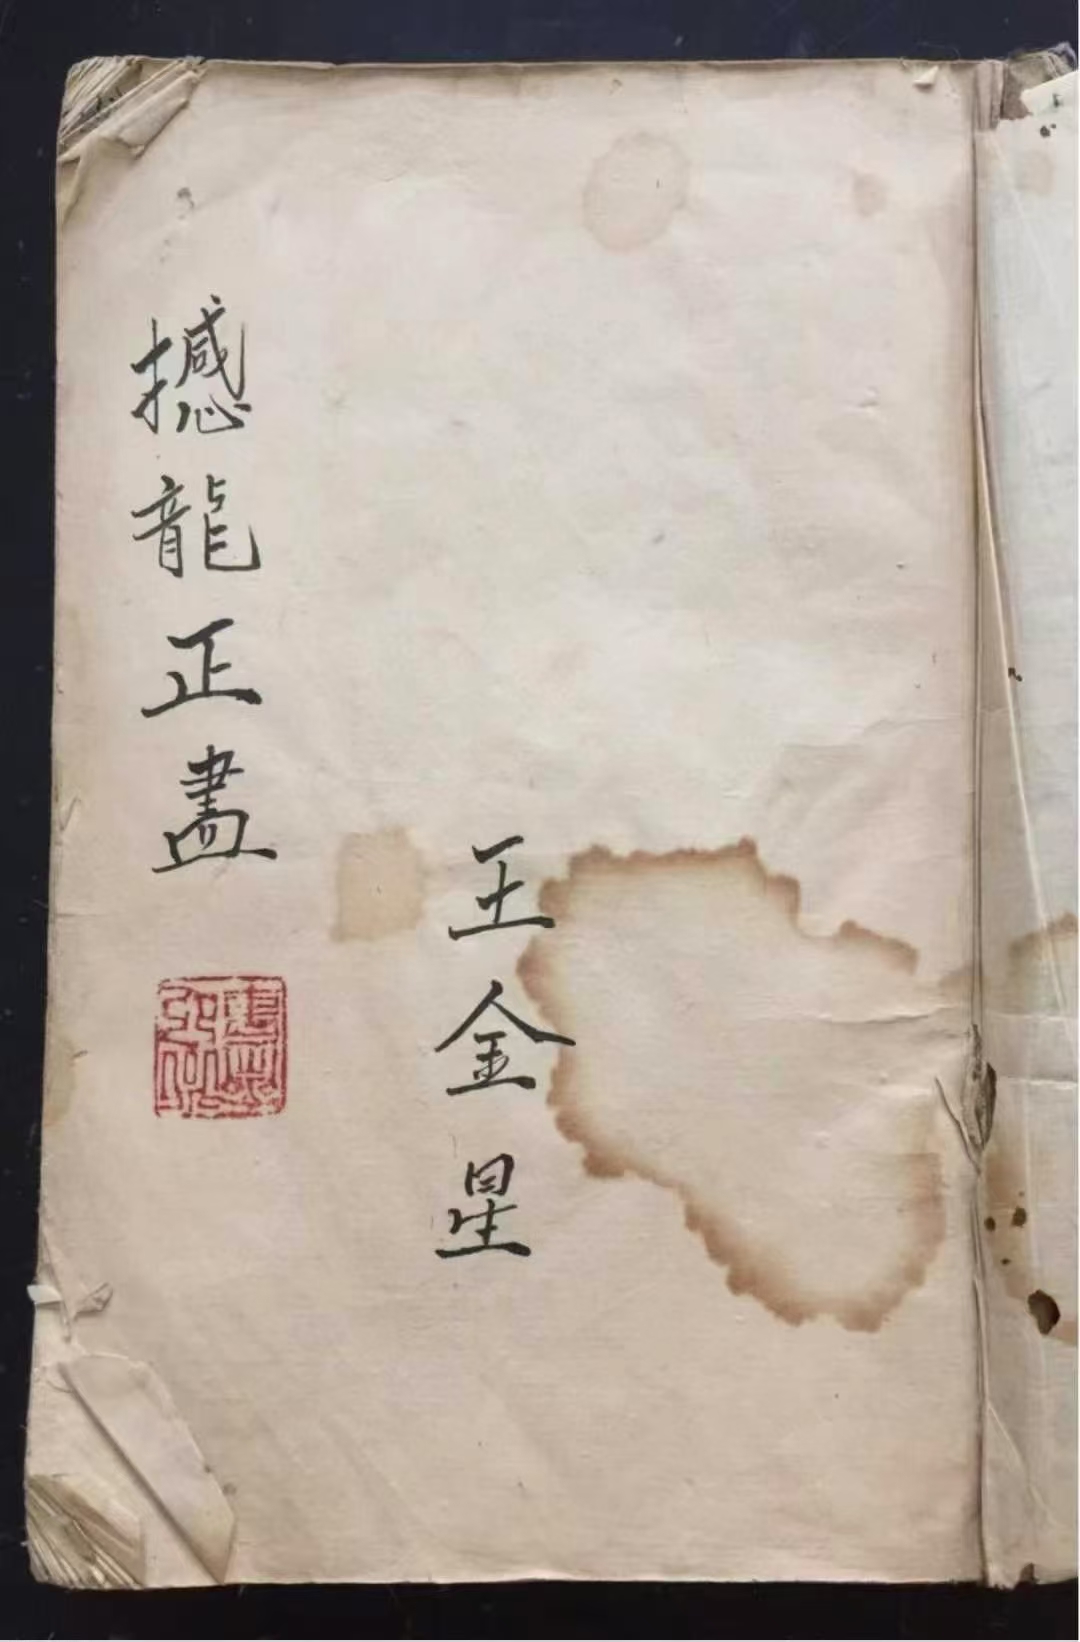 撼龍正盡
王金星